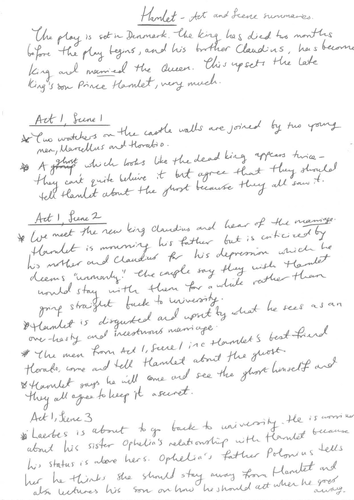 Hamlet - Act and Scene summaries.
The play is set in Denmark. The king has died two months
before the play begins, and his brother Claudius, has become
King and married the Queen. This upsets the late
King's son Prince Hamlet, very much.
Act 1, Scene 1
* Two watchers on the castle walls are joined by two young
men, Marcellus and Horatio.
* A ghost which looks like the dead king appears twice -
they can't quite believe it but agree that they should
tell Hamlet about the ghost because they all saw it.
Act 1, Scene 2
* We meet the new king Claudius and hear of the marriage
Hamlet is mourning his father but is criticised by
his mother and Claudius for his depression which he
deems "unmanly." The couple say they wish Hamlet
would stay with them for a while rather than
going straight back to university.
* Hamlet is disgusted and upset by what he sees as an
over-hasty and incestuous marriage.
* The men from Act 1, Scene 1 inc Hamlet's best friend
Horatio, come and tell Hamlet about the ghost.
* Hamlet says he will come and see the ghost himself and
they all agree to keep it a secret.
Act 1, Scene 3
* Laertes is about to go back to university. He is worried
about his sister Ophelia's relationship with Hamlet because
his status is above hers. Ophelia's father Polonius tells
her he thinks she should stay away from Hamlet and
also lectures his son on how he should act when he goes
away.